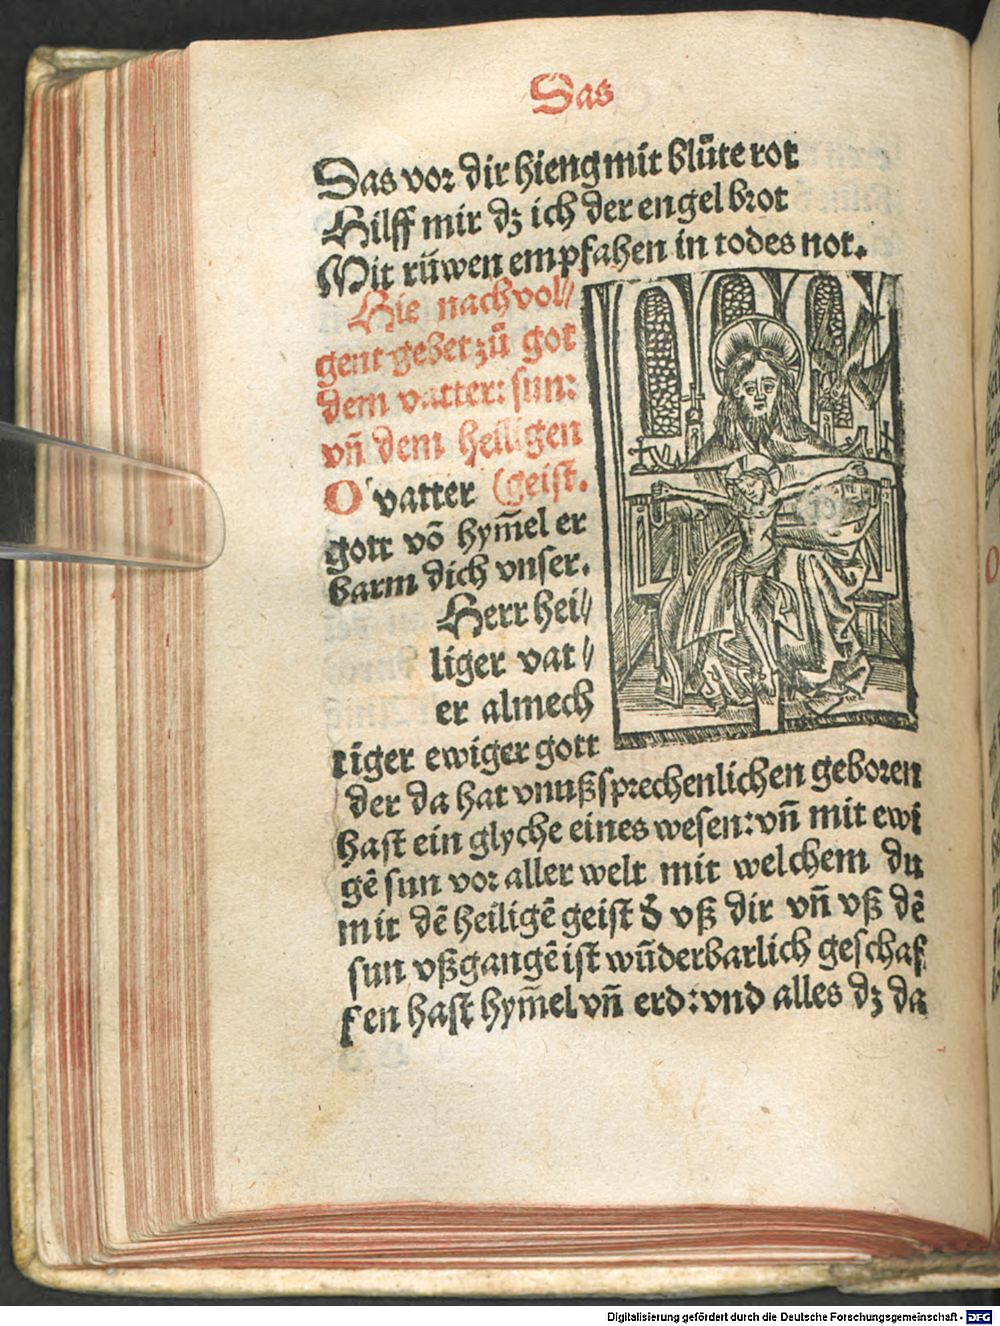 Das
Das vor dir hieng mit blůte rot
Hilff mir dz ich der engel brot
Mit rüwen empfahen in todes not.
Hie nachvol⸗
gent gebet zů got
dem vatter: sun:
vn̄ dem heiligen
(geist.
O vatter
gott vō hym̄el er
barm dich vnser.
Herr hei⸗
liger vat⸗
er almech
tiger ewiger gott
der da hat vnußsprechenlichen geboren
hast ein glyche eines wesen: vn̄ mit ewi
gē sun vor aller welt mit welchem du
mit dē heiligē geist d̄ vß dir vn̄ vß dē
sun vßgangē ist wūderbarlich geschaf
fen hast hym̄el vn̄ erd: vnd alles dz da
Digitalisierung gefördert durch die Deutsche Forschungsgemeinschaft - DFG